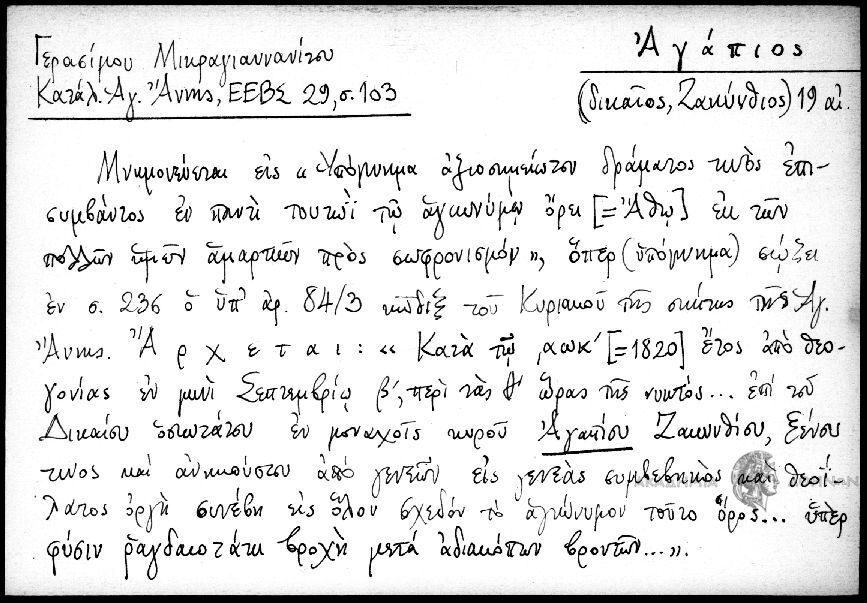 Γερασίμου Μικραγιαννανίτου
Ἀγάπιος
Κατάλ. Ἁγ. Ἄννης, ΕΕΒΣ 29, σ. 103
(δικαῖος, Ζακύνθιος) 19 αἰ.
Μνημονεύεται εἰς « Ὑπόμνημα ἀξιοσημείωτον δράματος τινὸς ἐπι-
συμβάντος ἐν παντὶ τουτωῒ τῷ ἁγιωνύμῳ ὄρει [=Ἄθῳ] ἐκ τῶν
πολλῶν ἡμῶν ἁμαρτιῶν πρὸς σωφρονισμόν», ὅπερ (ὑπόμνημα) σῴζει
ἐν σ. 236 ὁ ὑπ' ἀρ. 84/3 κῶδιξ τοῦ Κυριακοῦ τῆς σκήτης τῆς Ἁγ.
Ἄννης. Ἄρχεται: « Κατὰ τῷ ͵αωκ' [=1820] ἔτος ἀπὸ θεο-
γονίας ἐν μηνὶ Σεπτεμβρίῳ β', περὶ τὰς θ' ὥρας τῆς νυκτός... ἐπὶ τοῦ
Δικαίου ὁσιωτάτου ἐν μοναχοῖς κυροῦ Ἀγαπίου Ζακυνθίου, ξένου
τινος καὶ ἀνηκούστου ἀπὸ γενεῶν εἰς γενεὰς συμβεβηκὸς καὶ θεοΐ-
λατος ὀργὴ συνέβη εἰς ὅλον σχεδὸν τὸ ἁγιώνυμον τοῦτο ὄρος... ὑπὲρ
φύσιν ῥαγδαιοτάτη βροχὴ μετά ἀδιακόπων βροντῶν...».